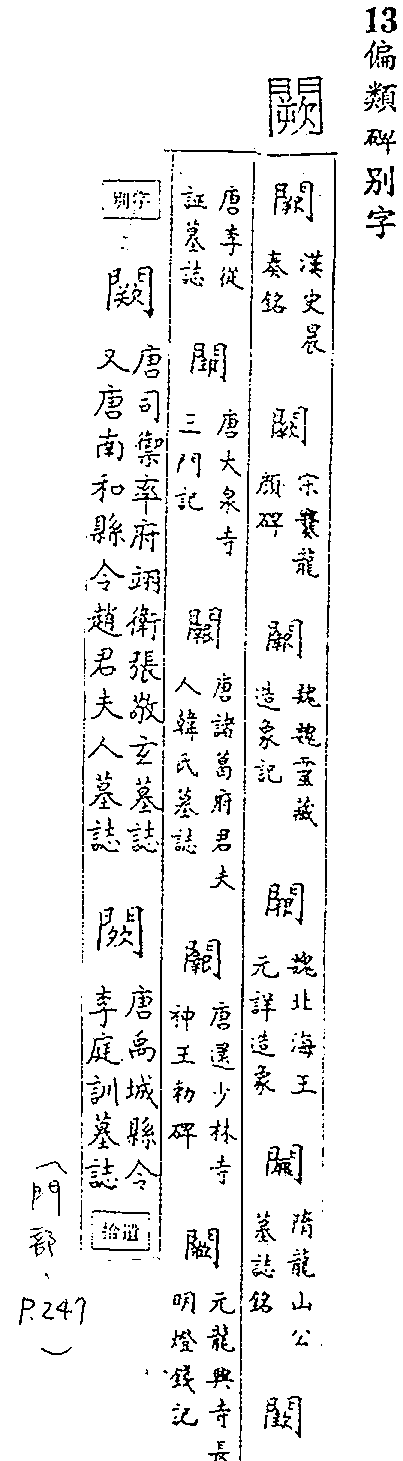 13偏類碑別字
闕
闕 漢史晨
奏銘
闕 宋爨龍
顏碑
闕 魏魏靈藏
造象記
闕 魏北海王
元詳造象
闕 隋龍山公
墓誌銘
闕
唐李從
証墓誌
唐大泉寺
三門記
唐諸葛府君夫
人韓氏墓誌
唐還少林寺
神王勅碑
元龍興寺長
明燈錢記
別字
闕 唐司禦率府翊衛張敬玄墓誌
又唐南和縣令趙君夫人墓誌
闕 唐禹城縣令
李庭訓墓誌
拾遺
(門部、P.247)